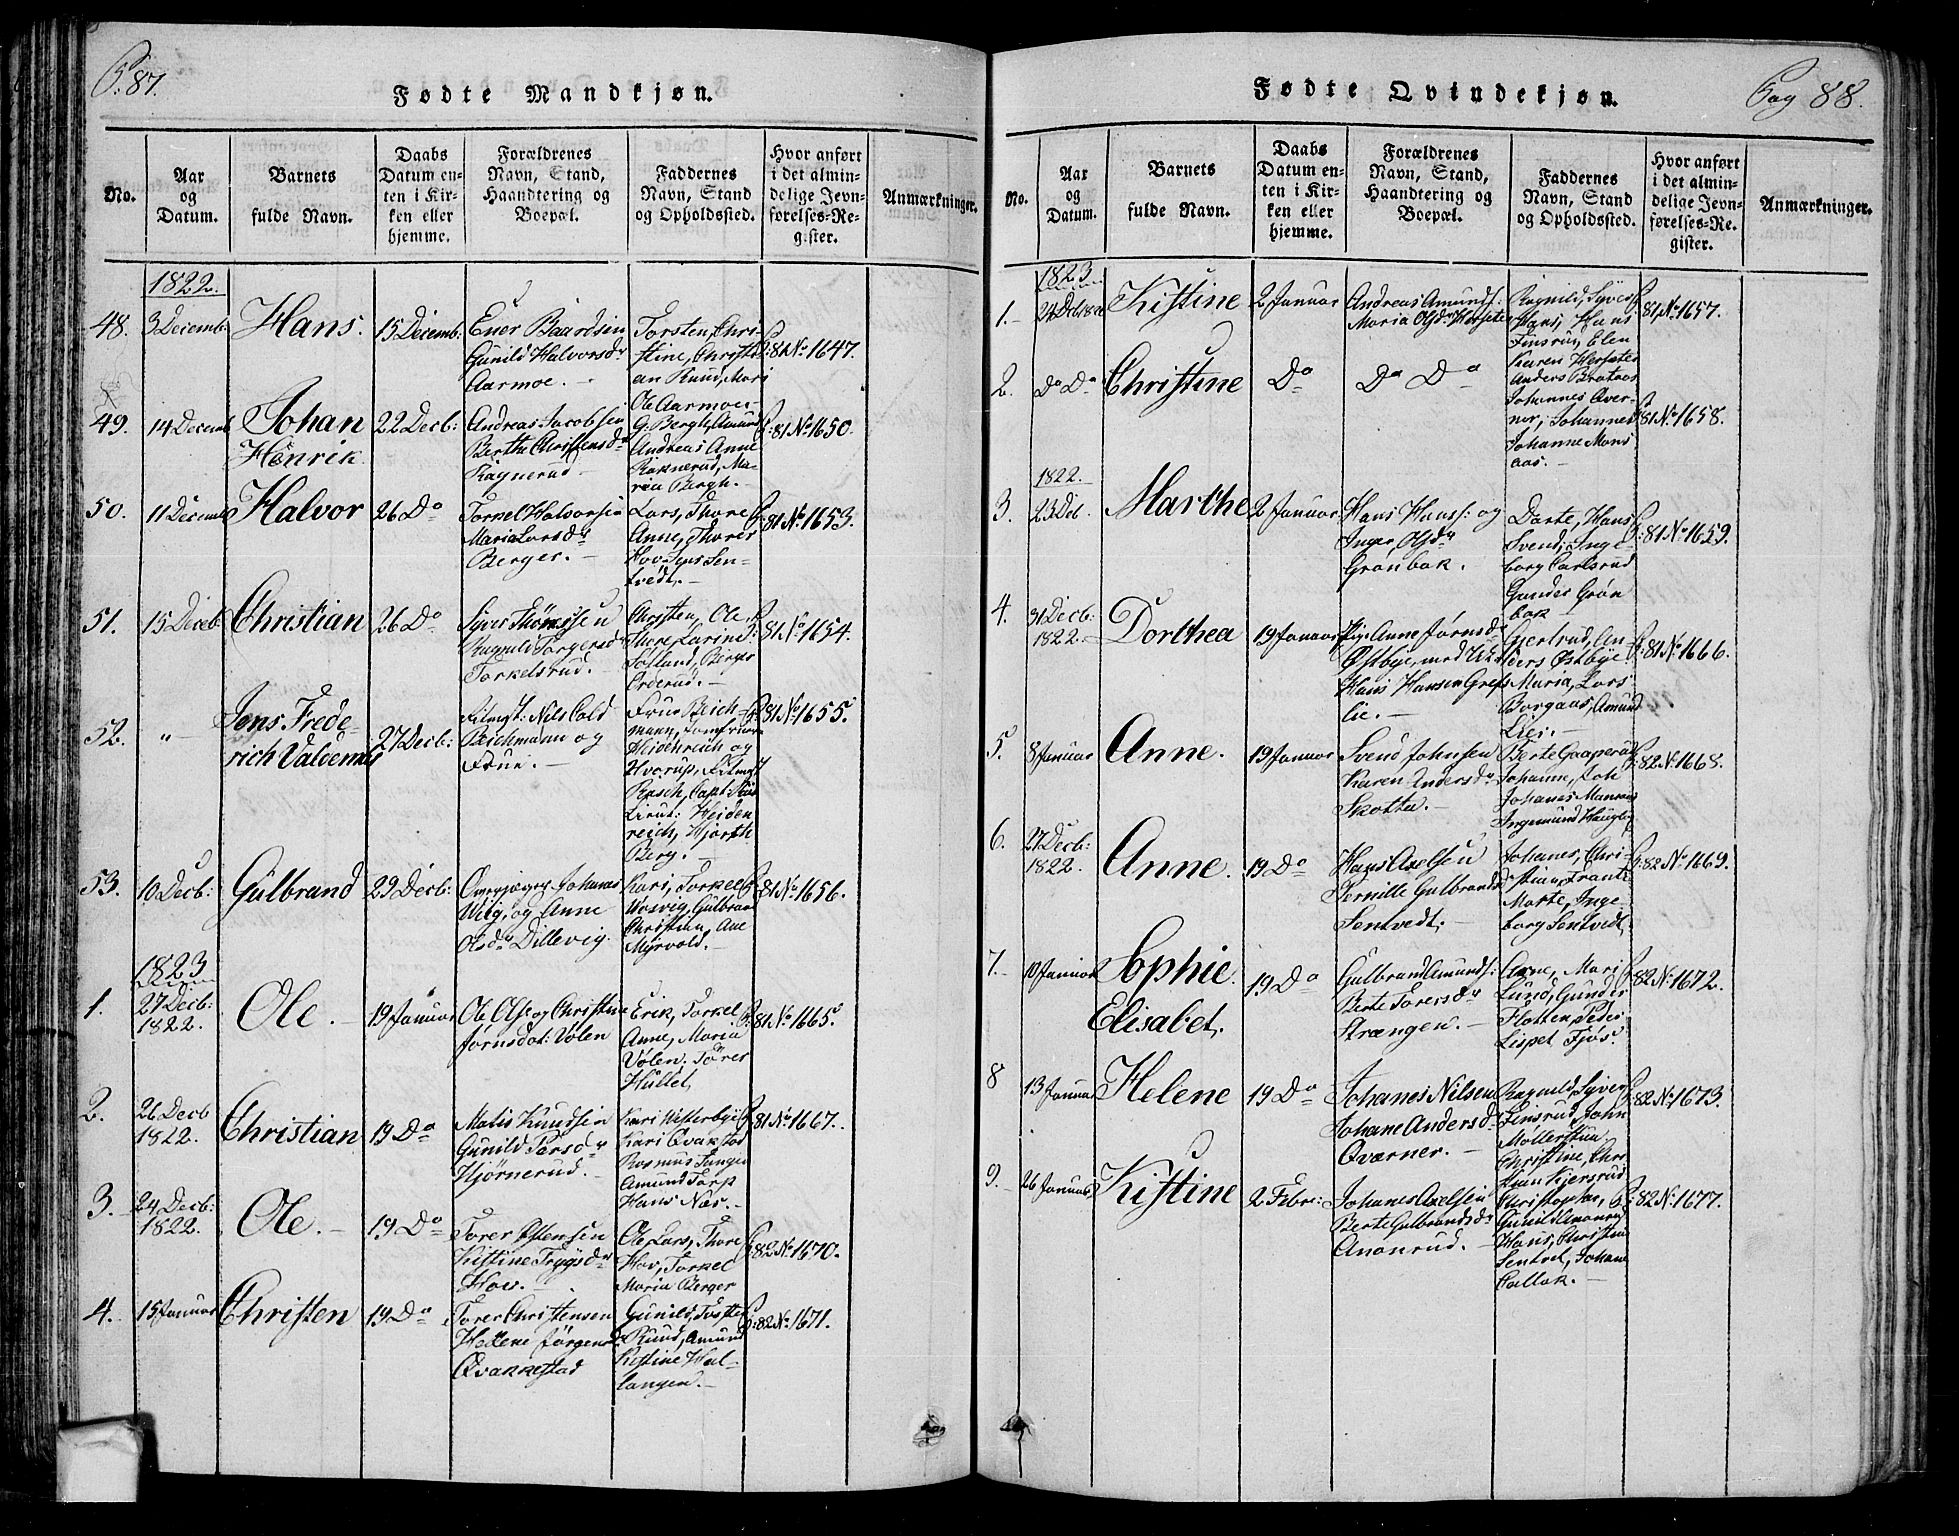 P: 87.
Fødte Mandkjøn.
No.
Aar og Datum.
Barnets fulde Navn.
Daabs Datum enten i Kirken eller hjemme.
Forældrenes Navn, Stand, Haandtering og Boepæl.
Faddernes Navn, Stand og Opholdssted.
Hvor anført i det almindelige Jevnførelses-Register.
Anmærkninger.
1822.
48. 3 Decemb: Hans. 15 Decemb:
Gunild Halvorsdr
Aarmoe.
Torsten, Christine,
P: 81 No 1647.
49. 14 Decemb Johan Henrik 22 Decb:
Andreas Jacobsen
Berthe Christensdr
Ragnerud
Ole Aarmoe
G: Bergh, Amund
Andreas Anne
Raknerud, Maria Bergh.
P: 81 No 1650.
50. 11 Decemb Halvor 26 Do
Torkel Halvorsen
Maria Larsdr
Berger.
Lars, Thore
Anne, Thorer
Hov, Jens Sentvedt.
P: 81 No 1653.
51. 15 Decb Christian 26 Do
Syver Thomessen
Torkelsrud.
Christen, Ole,
Thore, Karine
Berger
Orderud.
P: 81 No 1654.
52. „ Jens Frederich Valdemar 27 Decb:
Ritmst: Nils Cold
Beichmann og
Frue.
Frue Beichmann, Jomfruer
Heidenreich og
Hvorup, Ritmst
Rasch, Capt:
Lieut: Heidenreich, Hjorth
Berg.
P: 81 No 1655.
53. 10 Decb: Gulbrand 29 Decb:
Johanes
Wiig, og Anne
Olsdr Dillevig.
Kari, Torkel
Wosvig, Gulbran
Christian, Ane
Myrvold.
P: 81 No 1656.
1823
1. 27 Decb: 1822. Ole. 19 Januar
Ole Ols: og Christine
Jørnsdat: Vølen
Erik, Torkel
Anne, Maria
Vølen. Torer
Hullet
P: 81 No 1665.
2. 26 Decb 1822. Christian 19 Do
Matis Knudsen
Gunild Larsdr
Hjørnerud.
Kari Westerbye
Kari Qvakstad
Rasmus Tangen
Amund Torp
Hans Næs.
P: 81 No 1667.
3. 24 Decb: 1822. Ole. 19 Do
Torer Østensen
Kristine Trygsdr
Hov.
Ole Lars, Thore
Hov, Torkel
Maria Berger
P: 82 No 1670.
4. 15 Januar Christen 19 Do
Torer Christensen
Hellene Jørgensdr
Qvakkestad
Gunild,
Ruud, Amund
Kistine Hallangen.
P: 82 No 1671.
Pag 88.
Fødte Qvindekjøn.
No.
Aar og Datum.
Barnets fulde Navn.
Daabs Datum enten i Kirken eller hjemme.
Forældrenes Navn, Stand, Haandtering og Boepæl.
Faddernes Navn, Stand og Opholdssted.
Hvor anført i det almindelige Jevnførelses-Register.
Anmærkninger.
1823
1. Kistine 2 Januar
Andreas Amunds:
Maria Olsdr
Ragnild, Syver
Hans, Hans
Finsrud, Elen
P: 81 No 1657.
2. Do Do Christine Do Do Do
Karen
Anders Brataas
Johannes Overnor, Johannes
Johanne Monsaas.
P: 81 No 1658.
1822.
3. 23 Dec. Marthe 2 Januar
Hans Hans: og
Inger Olsdr
Grønbak.
Dorte, Hans
Svend, Ingeborg Carlsrud
Gunder Grønbak
P: 81 No 1659.
4. 31 Decb: 1822. Dorthea 19 Januar
Pige Anne Jørnsdr
Østbye, med
Hans Hansen Greslie.
Gjertrud, Anders Østbye
Maria, Lars
Borgaas, Amund
Lier.
P: 81 No 1666.
5. 8 Januar Anne. 19 Januar
Svend Johnsen
Karen Andersdr
Skotta.
Berte Gaaperud
Johanne, Joh
Johanes
Ingemund Haugby
P: 82 No 1668.
6. 27 Decb: 1822. Anne. 19 Do
Hans Axelsen
Pernille Gulbrandsd
Sentvedt.
Johanes, Christian, Frantz
Marte, Ingeborg Sentvedt.
P: 82 No 1669.
7. 10 Januar Sophie Elisabet. 19 Do
Gulbrand Amunds:
Berte Torersdr
Strængen.
Anne, Mari
Lund, Gunder
Flotten, Peder
Lispet Fjøs.
P: 82 No 1672.
8 13 Januar Helene 19 Do
Johanes Nilsen
Johane Andersd
Qværner.
Ragnild, Syver
Finsrud, John
Møllerstua
Christine, Christian Kjersrud
P: 82 No 1673.
9. 26 Januar Kistine 2 Febr:
Johanes Axelsen
Berte Gulbrandsdr
Anonrud.
Christopher,
Gunild Anonrud
Hans, Christian
Sentvet, Johane
Callak.
P: 82 No 1677.